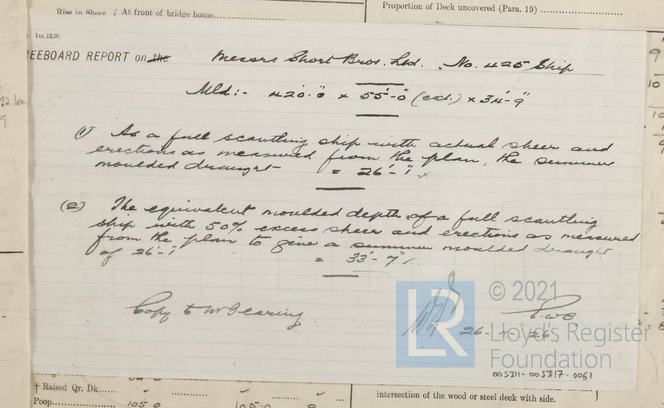 Rise in Sheer { At front of bridge house
Proportion of Deck uncovered (Para. 19)
1m.12.20.
REEBOARD REPORT on the Messrs Short Bros. Ltd. No. 425 Ship
Mld:- 420'.0" × 55'-0" (ext.) × 34'-9"
(1) As a full scantling ship with actual sheer and
erections as measured from the plan, the summer
moulded draught = 26'-1"
(2) The equivalent moulded depth of a full scantling
ship with 50% excess sheer and erections as measured
from the plan to give a summer moulded draught
of 26'-1" = 33'-7"
Copy to Mr Gearing
26-
26
LR
© 2021
Lloyd's Register
Foundation
005311-005317-0061
† Raised Qr. Dk.
Poop
105.0
105.0
intersection of the wood or steel deck with side.